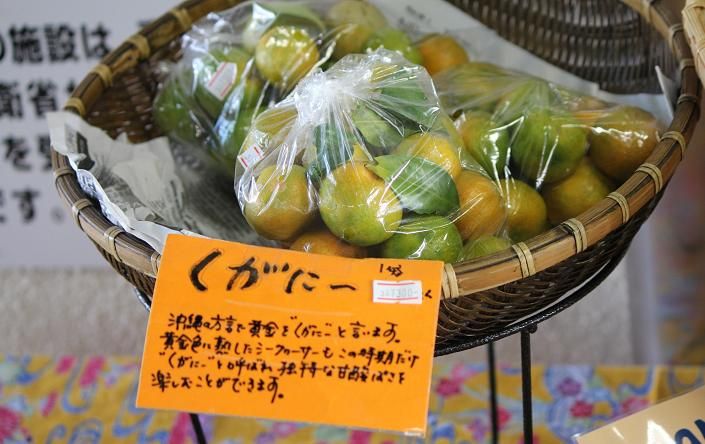 の施設は
衛省
を
です。
くがにー
1袋
¥300
沖縄の方言で黄金を"くがに"と言います。
黄金色に熟したシークヮーサーもこの時期だけ
"くがにー"と呼ばれ、独特な甘酸っぱさを
楽しむことができます。